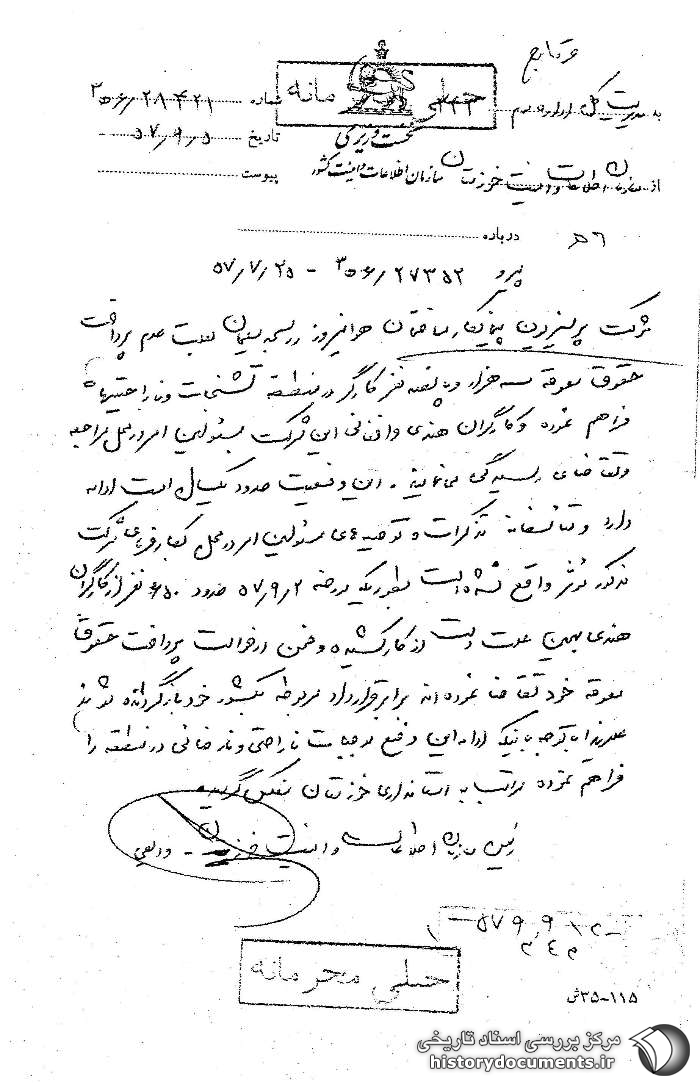 خیلی محرمانه
به مدیریت کل اداره سوم ۳۳۳
شماره ۲۸۴۲۱/ ۳۵۶
نخست وزیری
تاریخ ۵۷/۹/۵
از سازمان اطلاعات و امنیت خوزستان
سازمان اطلاعات و امنیت کشور
پیوست
درباره
پیرو ۲۷۳۵۲/ ۳۵۶ - ۵۷/۷/۲۵
شرکت پیمانکار ساختمان هوانیروز در مسجدسلیمان بعلت عدم پرداخت
حقوق معوقه سه هزار و پانصد نفر کارگر در منطقه تشنجات و ناراحتیهائی
فراهم نموده و کارگران هندی و افغانی این شرکت بمسئولین امر در محل مراجعه
و تقاضای رسیدگی مینمایند . این وضعیت حدود یکسال است ادامه
دارد و متأسفانه تذکرات و توصیه های مسئولین امر در محل بکارفرمای شرکت
مذکور مؤثر واقع نشده است بطوریکه مورخه ۵۷/۹/۲ حدود ۶۵۰ نفر از کارگران
هندی بهمین علت دست از کار کشیده و ضمن درخواست پرداخت حقوق
معوقه خود تقاضا نموده اند برابر قرارداد مربوطه بکشور خود بازگردانده شوند
علیهذا با توجه باینکه ادامه این وضع موجبات ناراحتی و نارضائی در منطقه را
فراهم نموده مراتب به استانداری خوزستان منعکس گردید
رئیس سازمان اطلاعات و امنیت خوزستان -
خیلی محرمانه
۱۱۵-۳۵ش
مرکز بررسی اسناد تاریخی
historydocuments.ir